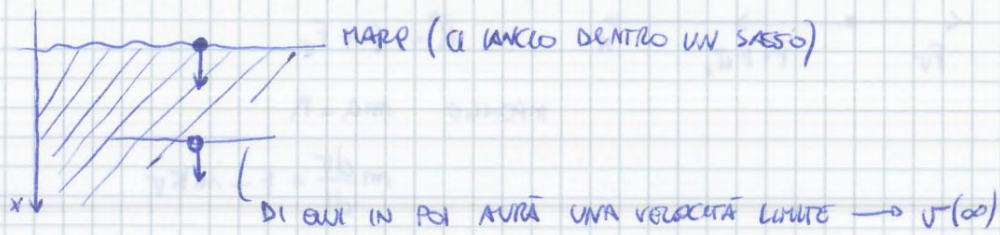 MARE (CI LANCIO DENTRO UN SASSO)
x
DI QUI IN POI AVRÀ UNA VELOCITÀ LIMITE → v(∞)